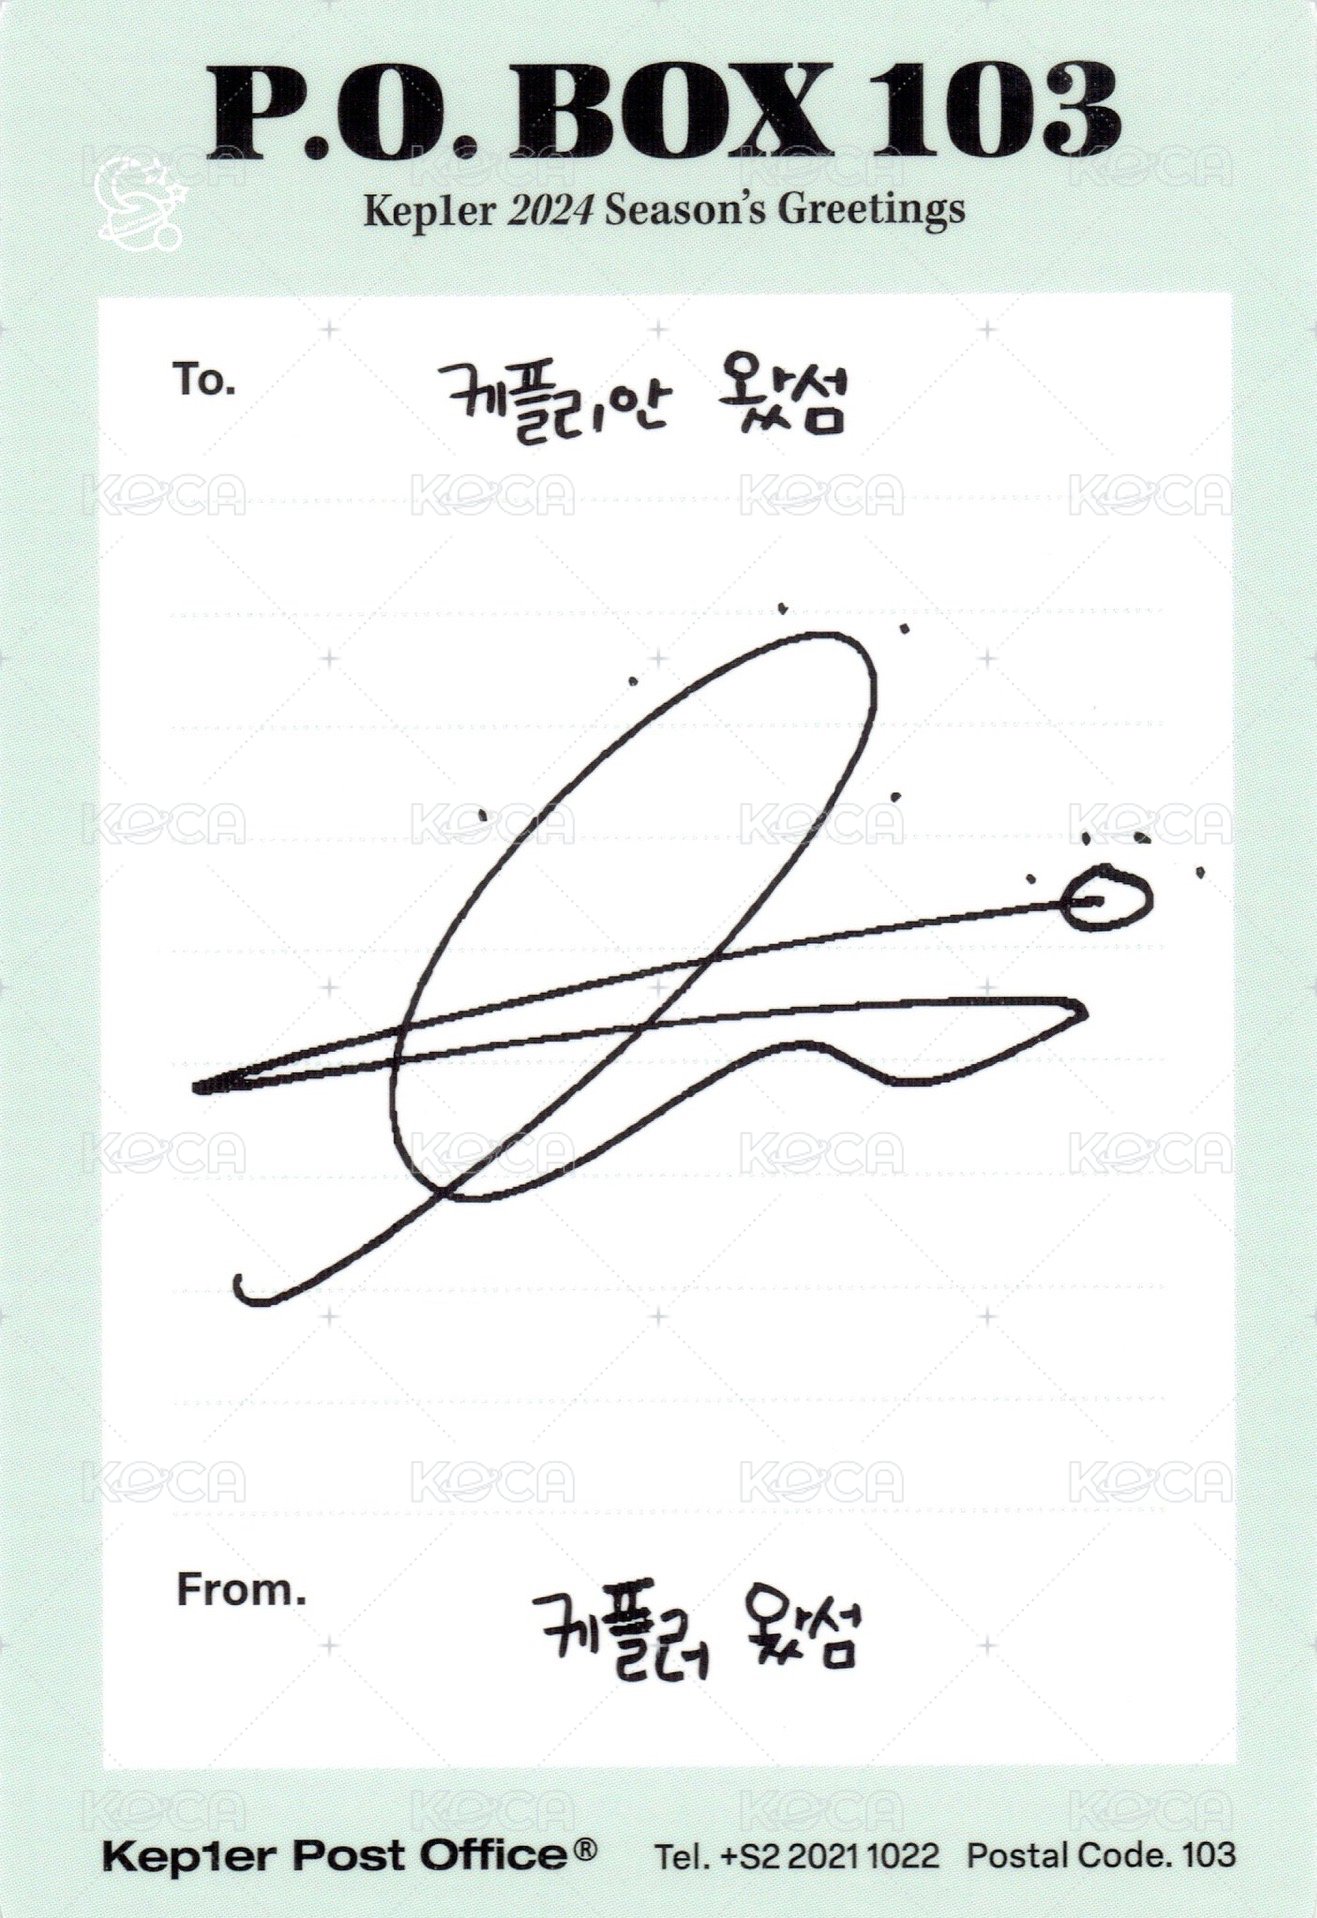 P.O. BOX 103
Kep1er 2024 Season's Greetings
To. 케플리안 왔섬
From. 케플러 왔섬
Kep1er Post Office® Tel. +S2 2021 1022 Postal Code. 103
KOCA